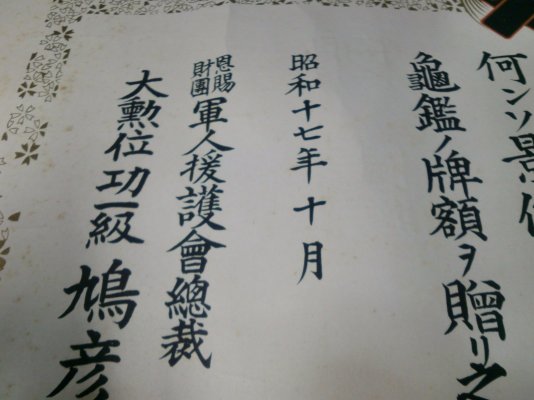 何ンソ景仰
龜鑑ノ牌額ヲ贈リ之
昭和十七年十月
恩賜
財團軍人援護會總裁
大勲位功一級鳩彦